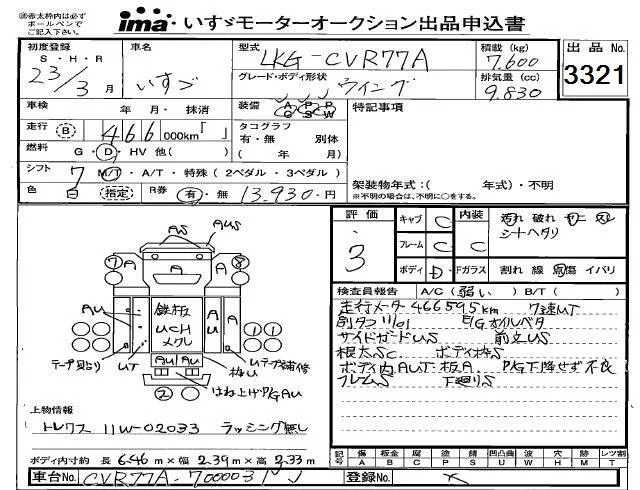 ㊟赤太枠内は必ず
ボールペンで
ご記入下さい。
ima いすゞモーターオークション出品申込書
初度登録 車名 型式 LKG-CVR77A 積載 (kg) 7,600 出品 No. 3321
S・H・R 23/3 月 いすゞ グレード・ボディ形状 ウイング 排気量 (cc) 9.830
車検 年 月・ 抹消 装備 A P P C S W 特記事項
走行 B 466 000km「 」 タコグラフ 有・無 別体
燃料 G・D・HV 他( ) ( 年 月)
シフト 7 M/T・A/T・特殊(2ペダル・3ペダル) 架装物年式:( 年式)・不明
色 白 指定 R券 有・無 13.930-円 ※不明の場合は、不明に○をする。
評価 3 キャブ C 内装 C 汚れ 破れ ヤニ スレ
シートヘタリ
フレーム C
ボディ D Fガラス 割れ 線 飛傷 イバリ
検査員報告 A/C (弱い) B/T ( )
走行メータ 466595km 7速MT
E/Gオイルベタ
サイドガードUS 前立US
根太SC ボディ枠S
ボディ内AUT 板A P/G下降せず不良
フレムS 下廻りS
AS AUS
A
7 A A 8
AU 鉄板 UCH メクレ AU A
AU AU
1 1
テープ貼り UT 梅U Uテープ補修
はね上げP/G AU
2
上物情報
トレクス 11W-02033 ラッシング無し
ボディ内寸約 長 6.46 m × 幅 2.39 m × 高 2.33 m
記号 傷 A 板金 B 腐 C 塗 P 錆 S 凹凸曲 U 波 W 穴 H 跡 M レツ割 T
車台No. CVR77A-7000031 登録No. ×